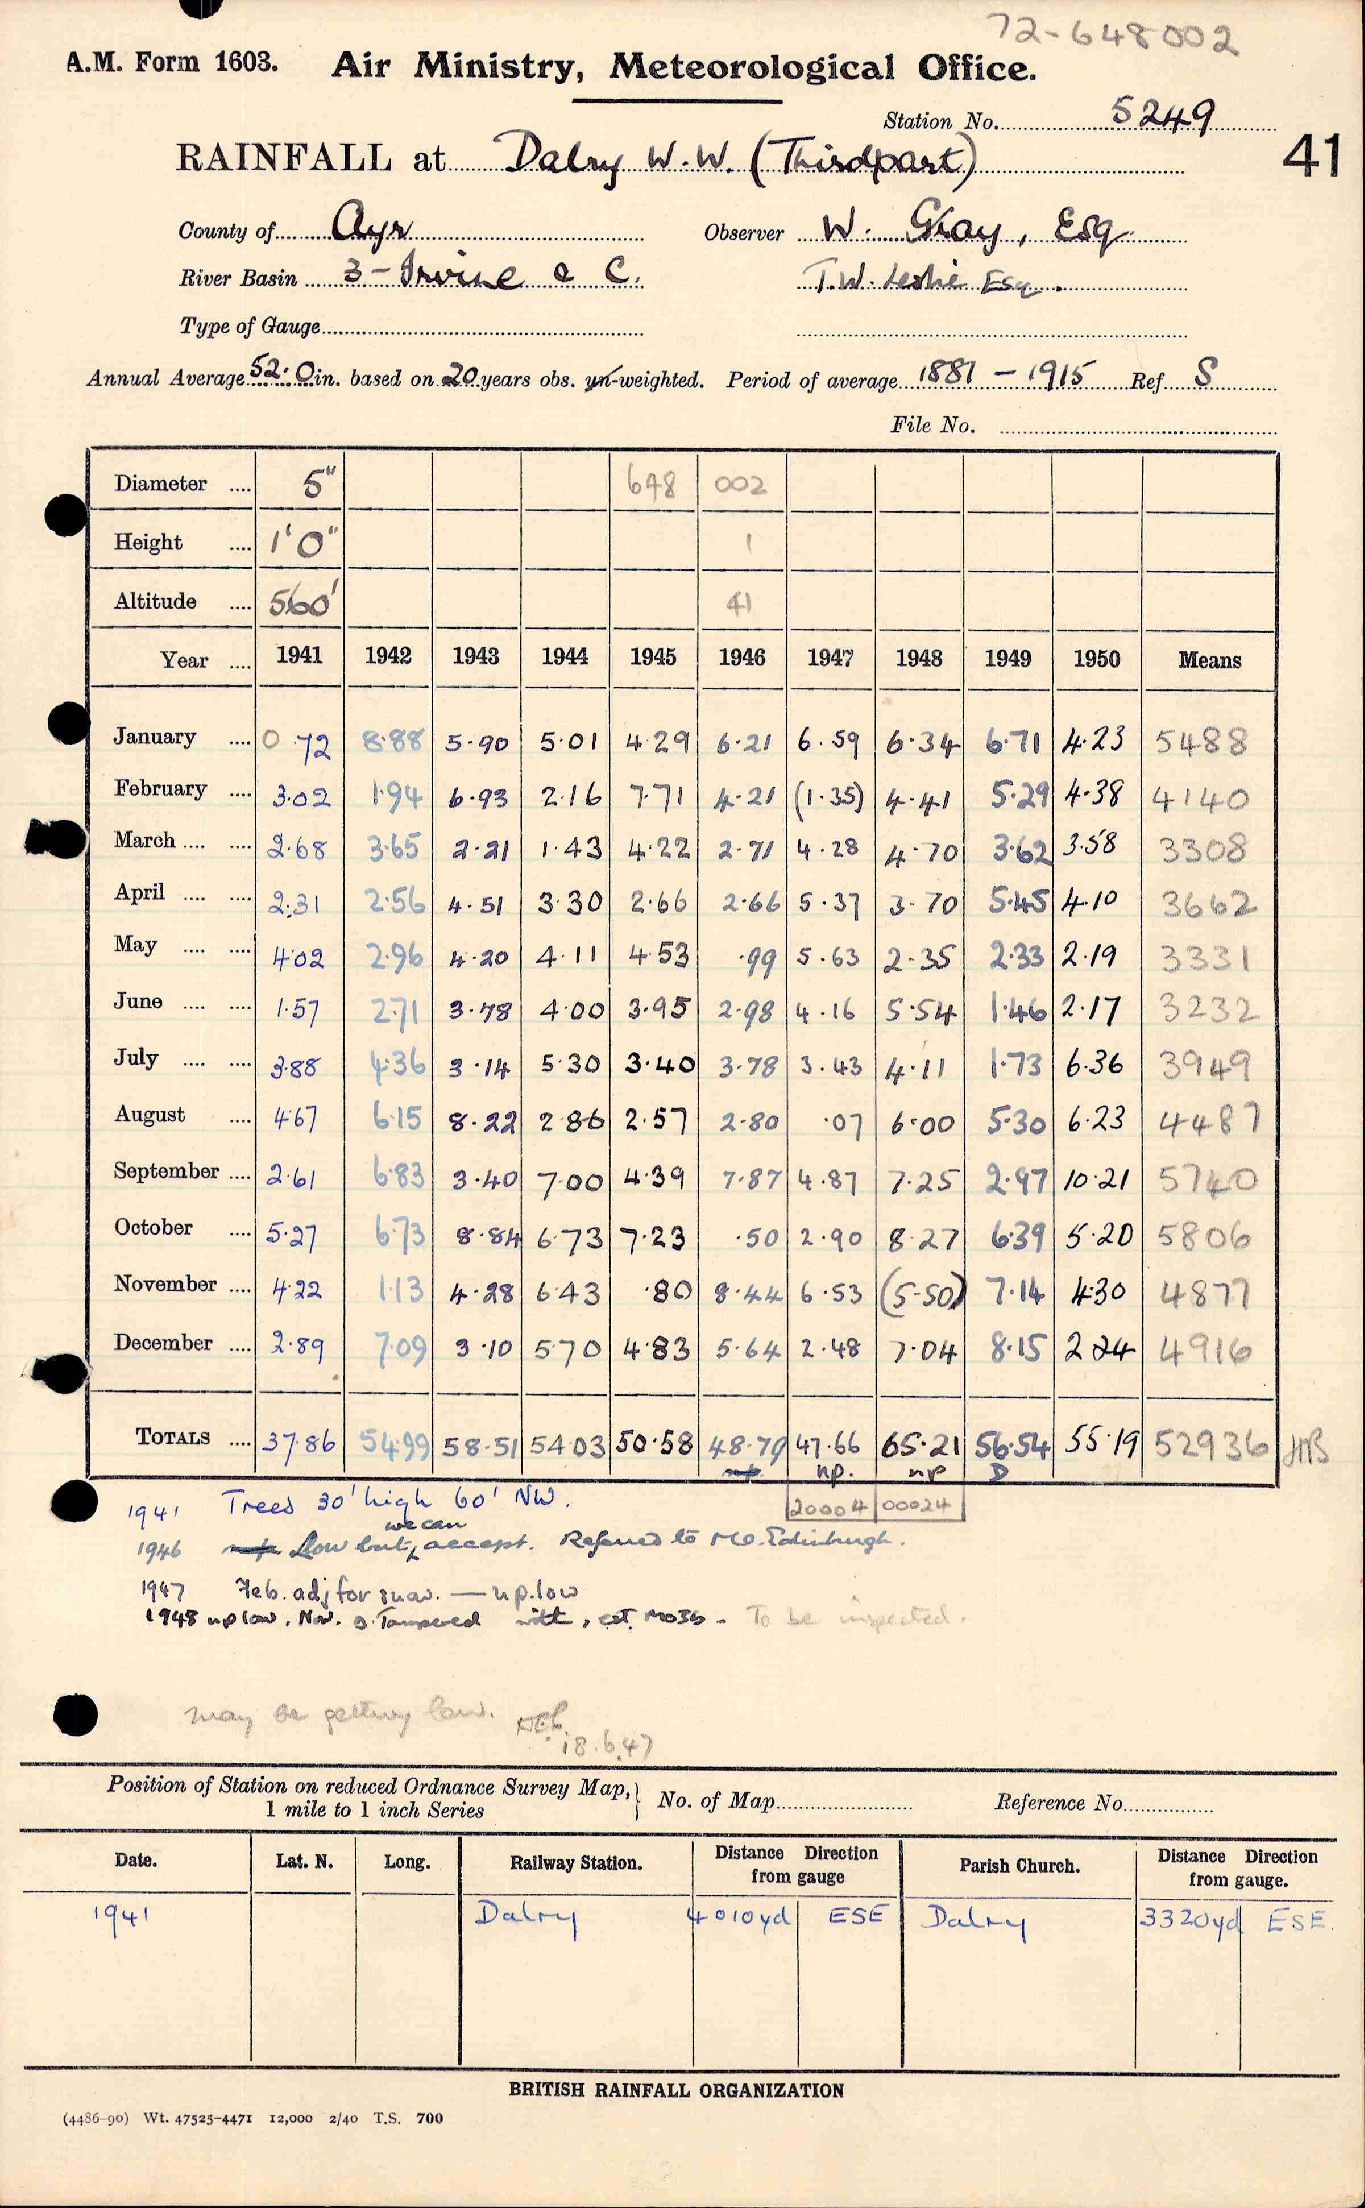 72-648002
A.M. Form 1603. Air Ministry, Meteorological Office.
Station No. 5249
41
RAINFALL at Dalry W.W. (Thirdpart)
County of Ayr Observer W. Gray, Esq
River Basin 3 - Irvine & C. T.W. Leslie Esq.
Type of Gauge
Annual Average 52.0 in. based on 20 years obs. un-weighted. Period of average 1881 - 1915 Ref S
File No.
Diameter .... 5" 648 002
Height .... 1'0" 1
Altitude .... 560' 41
Year .... 1941 1942 1943 1944 1945 1946 1947 1948 1949 1950 Means
January .... 0.72 8.88 5.90 5.01 4.29 6.21 6.59 6.34 6.71 4.23 5488
February .... 3.02 1.94 6.93 2.16 7.71 4.21 (1.35) 4.41 5.29 4.38 4140
March .... .... 2.68 3.65 2.21 1.43 4.22 2.71 4.28 4.70 3.62 3.58 3308
April .... .... 2.31 2.56 4.51 3.30 2.66 2.66 5.37 3.70 5.45 4.10 3662
May .... .... 4.02 2.96 4.20 4.11 4.53 .99 5.63 2.35 2.33 2.19 3331
June .... .... 1.57 2.71 3.78 4.00 3.95 2.98 4.16 5.54 1.46 2.17 3232
July .... .... 3.88 4.36 3.14 5.30 3.40 3.78 3.43 4.11 1.73 6.36 3949
August .... 4.67 6.15 8.22 2.86 2.57 2.80 .07 6.00 5.30 6.23 4487
September .... 2.61 6.83 3.40 7.00 4.39 7.87 4.87 7.25 2.97 10.21 5740
October .... 5.27 6.73 8.84 6.73 7.23 .50 2.90 8.27 6.39 5.20 5806
November .... 4.22 1.13 4.28 6.43 .80 8.44 6.53 (5.50) 7.14 4.30 4877
December .... 2.89 7.09 3.10 5.70 4.83 5.64 2.48 7.04 8.15 2.24 4916
TOTALS .... 37.86 54.99 58.51 54.03 50.58 48.79 47.66 65.21 56.54 55.19 52936
np. np D
20004 00024
1941 Trees 30' high 60' NW.
we can
1946 Low but accept. Referred to MO. Edinburgh.
1947 Feb. adj for snow. — np. low
1948 np low. Nov. g. Tampered with, est MO3b - To be inspected.
may be getting low.
18.6.47
Position of Station on reduced Ordnance Survey Map, No. of Map Reference No.
1 mile to 1 inch Series
Date. Lat. N. Long. Railway Station. Distance Direction from gauge Parish Church. Distance Direction from gauge.
1941 Dalry 4010yd ESE Dalry 3320yd ESE.
BRITISH RAINFALL ORGANIZATION
(4486-90) Wt. 47525-4471 12,000 2/40 T.S. 700